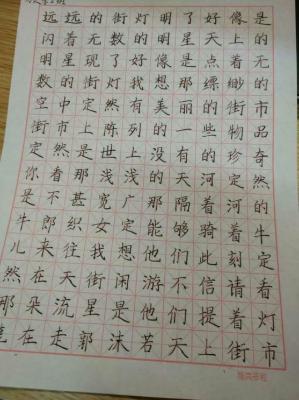 远远的街灯明了好像是
闪着无数的明星天上的
明星现了好像是点着无
数的街灯我想那缥缈的
空中定然有美丽的街市
街市上陈列的一些物品
定然是世上没有的珍奇
你看那浅浅的天河定然
是不甚宽广那隔着河的
牛郎织女定能够骑着牛
儿来往我想他们此刻定
然在天街闲游不信请看
那朵流星是他们提着灯
笼在走郭沫若天上街市